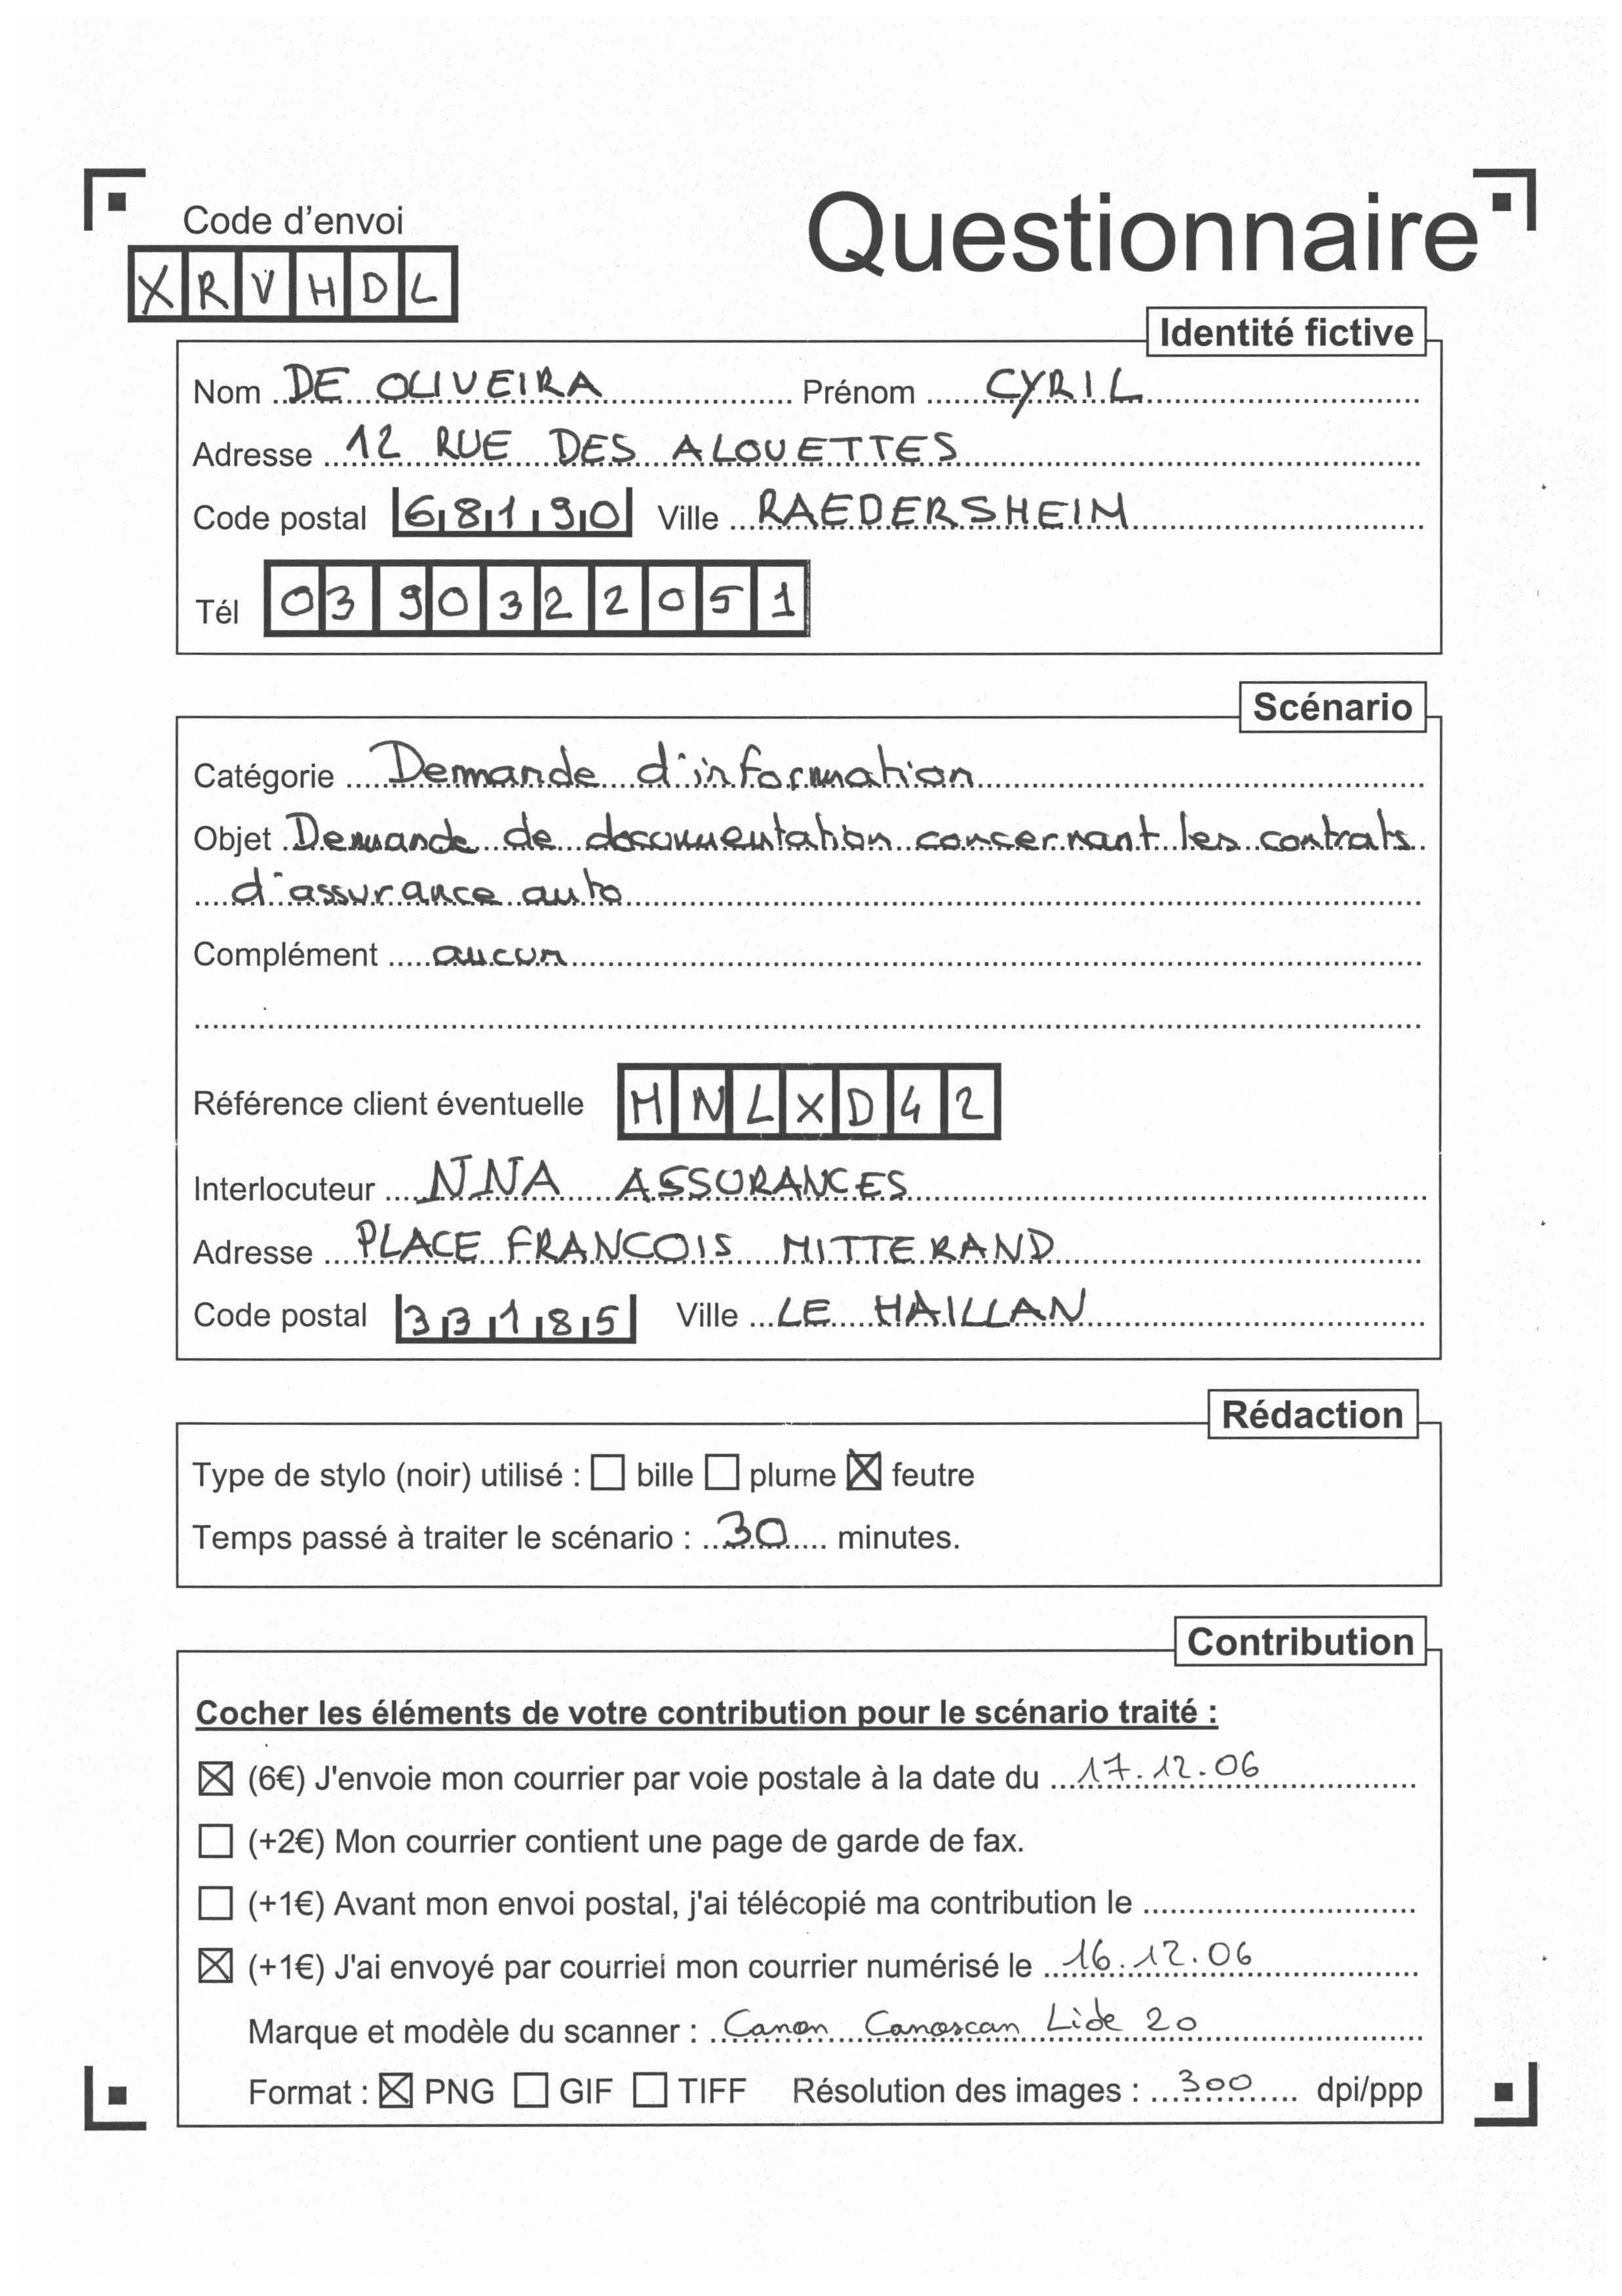 Code d'envoi
Questionnaire
XRVHDL
Identité fictive
Nom DE OLIVEIRA Prénom CYRIL
Adresse 12 RUE DES ALOUETTES
Code postal 68190 Ville RAEDERSHEIM
Tél 0390322051
Scénario
Catégorie Demande d'information
Objet Demande de documentation concernant les contrats
d'assurance auto
Complément aucun
Référence client éventuelle HNLXD42
Interlocuteur NNA ASSURANCES
Adresse PLACE FRANCOIS MITTERAND
Code postal 33185 Ville LE HAILLAN
Rédaction
Type de stylo (noir) utilisé : ☐ bille ☐ plume ☒ feutre
Temps passé à traiter le scénario : 30 minutes.
Contribution
Cocher les éléments de votre contribution pour le scénario traité :
☒ (6€) J'envoie mon courrier par voie postale à la date du 17.12.06
☐ (+2€) Mon courrier contient une page de garde de fax.
☐ (+1€) Avant mon envoi postal, j'ai télécopié ma contribution le
☒ (+1€) J'ai envoyé par courriel mon courrier numérisé le 16.12.06
Marque et modèle du scanner : Canon Canoscan Lide 20
Format : ☒ PNG ☐ GIF ☐ TIFF Résolution des images : 300 dpi/ppp